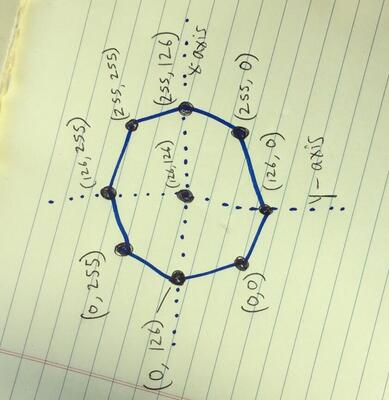 (126, 255)
(0, 255)
(255, 255)
(0, 126)
(126,126)
(255, 126)
x-axis
(0,0)
(255, 0)
(126, 0)
y-axis